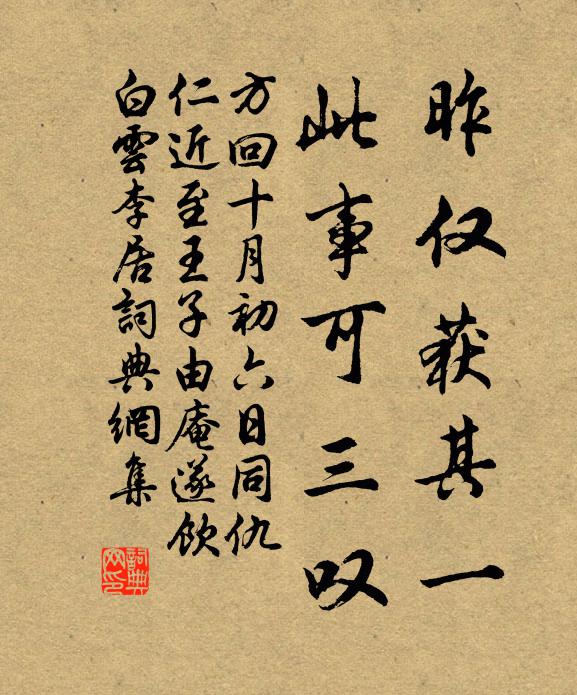 昨仅获其一
此事可三叹
方回十月初六日同仇
仁近至王子由庵遂饮
白雲李居詞典網集
詞典网印